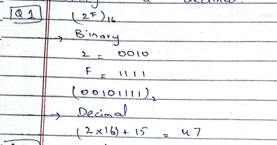 a decimal.
Q1 (2F)₁₆
→ Binary
2 = 0010
F = 1111
(00101111)₂
→ Decimal
(2×16)+15 = 47